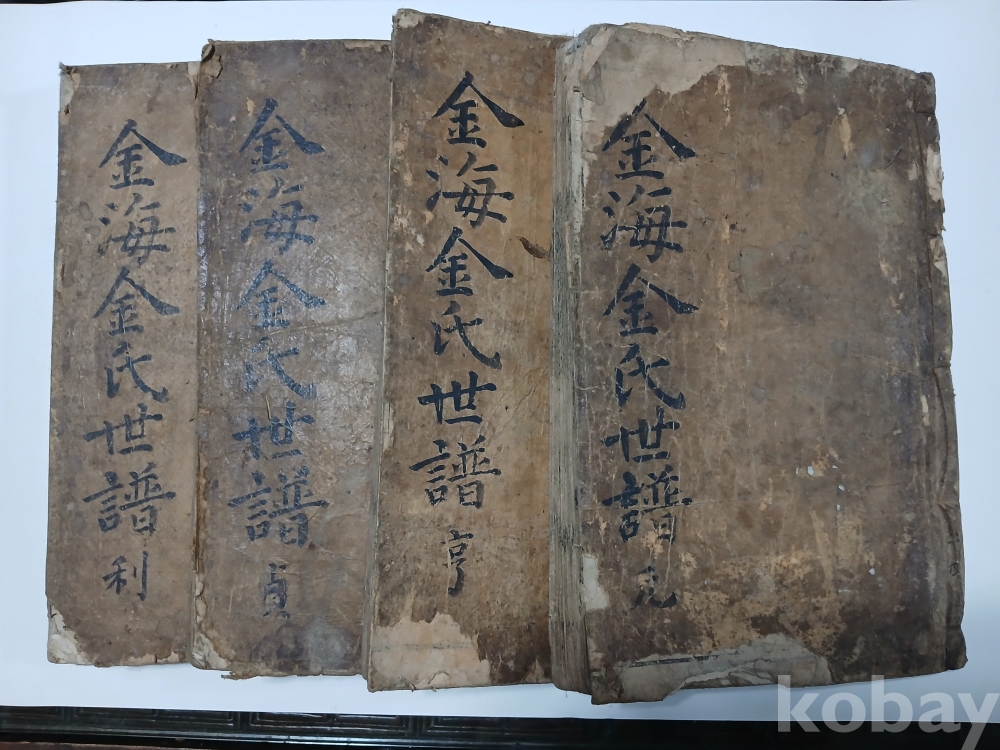 金海金氏世譜 元
金海金氏世譜 亨
金海金氏世譜 貞
金海金氏世譜 利
kobay